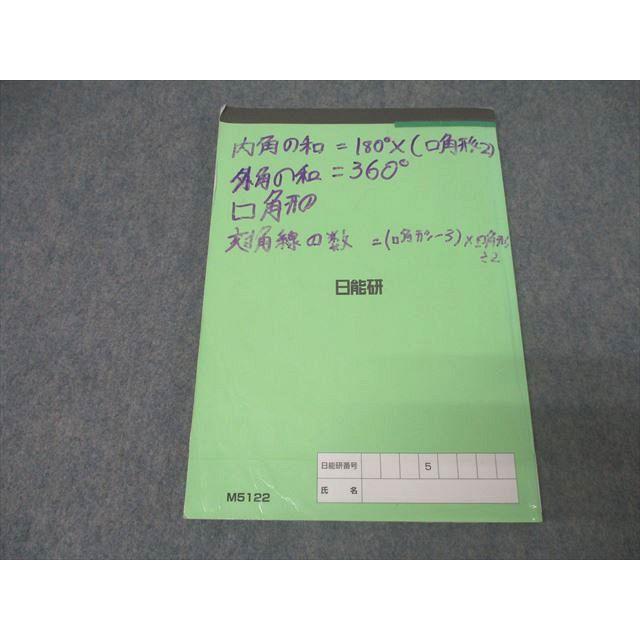 内角の和 = 180°×(□角形-2)
外角の和 = 360°
□角形の
対角線の数 =(□角形-3)×□角形
÷2
日能研
日能研番号 5
氏 名
M5122